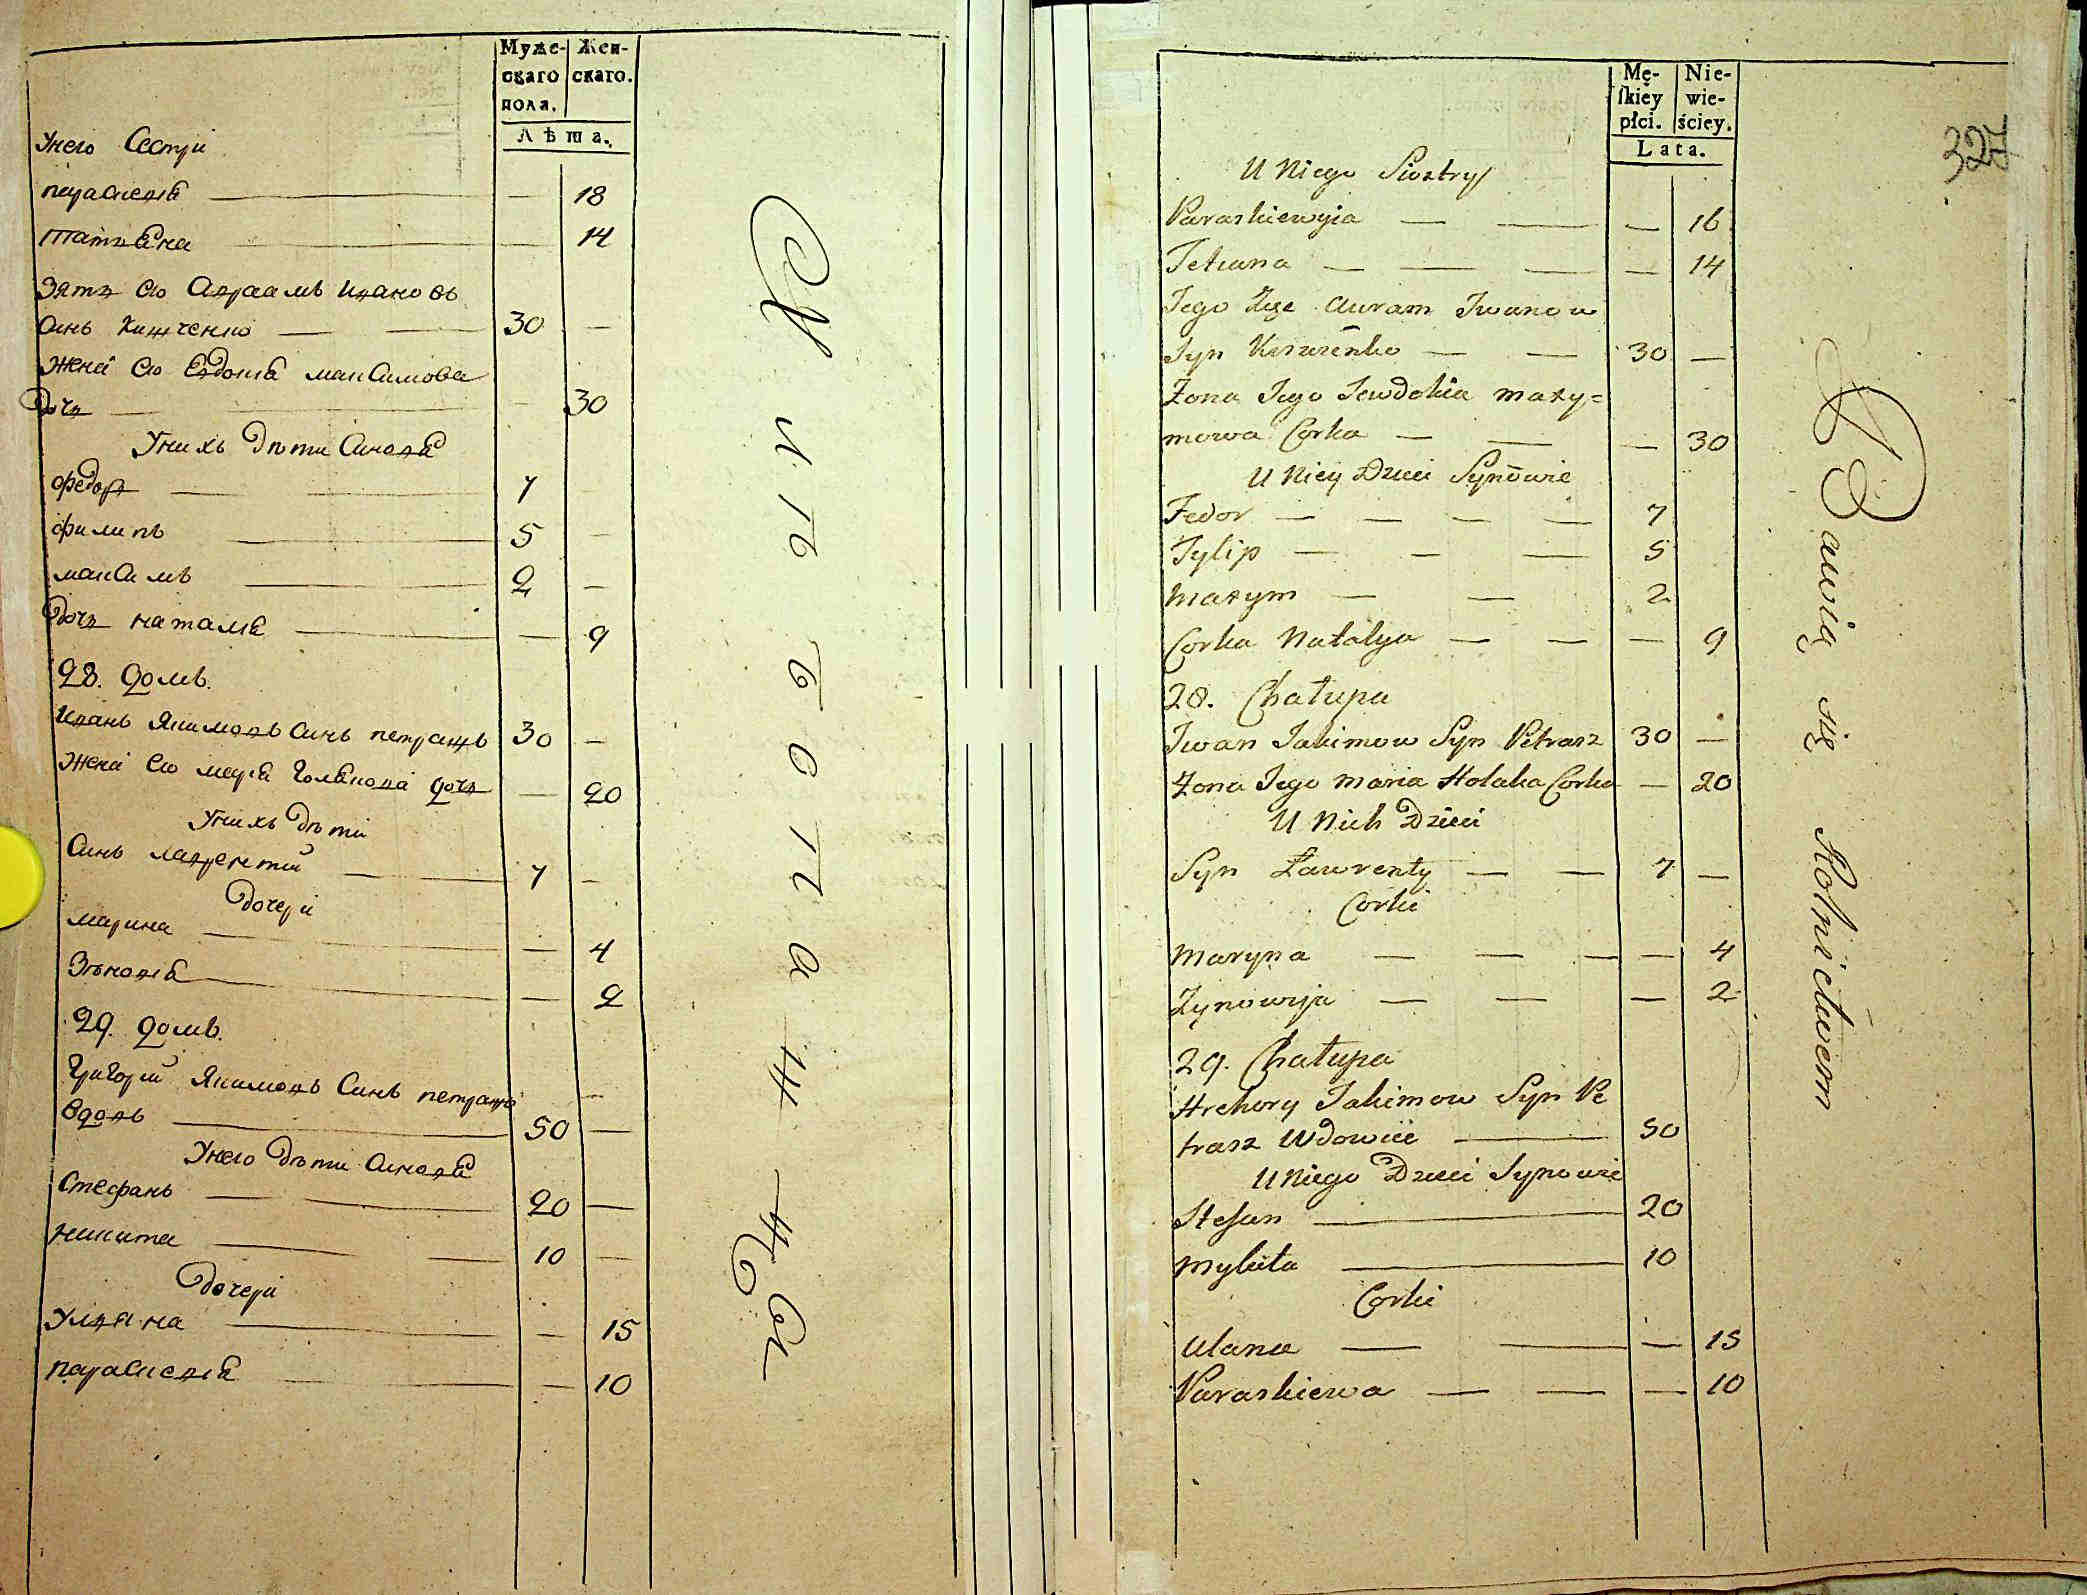 Муже-
скаго
пола.
Жен-
скаго.
Лѣта.
Унего Сестри
параскевія — — 18
татьяна — — 14
Зять его Авраамъ Ивановъ
синъ Кищченко — 30 —
Жена его Евдокія максимова
дочь — — 30
Унихъ дѣти Синовя
Федоръ — 7
Филипъ — 5 —
максимъ — 2 —
дочь наталія — — 9
28. домъ.
Иванъ Якимовъ Синъ петрашъ 30 —
Жена его марія Голакова дочь — 20
Унихъ дѣти
Синъ лаврентій — 7 —
дочери
марина — — 4
Зѣновія — — 2
29. домъ.
Григорій Якимовъ Синъ петрашъ
вдовъ — 50 —
Унего дѣти Синовя
Стефанъ — 20 —
никита — 10 —
дочери
Уляна — — 15
параскевія — — 10
Mę-
skiey
płci.
Nie-
wie-
ściey.
Lata.
327
U Niego Siostry
Paraskiewyia — — — 16
Tetiana — — — — 14
Jego Auram Iwanow
Syn — — 30 —
Żona Jego Jewdokia maxy=
mowa Corka — — — 30
U Niey Dzieci Synowie
Fedor — — — — 7
Fylip — — — 5
maxym — — 2
Corka Natalya — — — 9
28. Chałupa
Iwan Jakimow Syn Petrasz 30 —
Żona Jego maria Holaka Corka — 20
U Nich Dzieci
Syn Ławrenty — — 7 —
Corki
maryna — — — — 4
Zynowyja — — — 2
29. Chałupa
Hrehory Jakimow Syn Pe
trasz Wdowiec — 50
U Niego Dzieci Synowie
Stefan — 20
mykita — 10
Corki
Ulana — — — 15
Paraskiewa — — — 10
Bawią się Rolnictwem